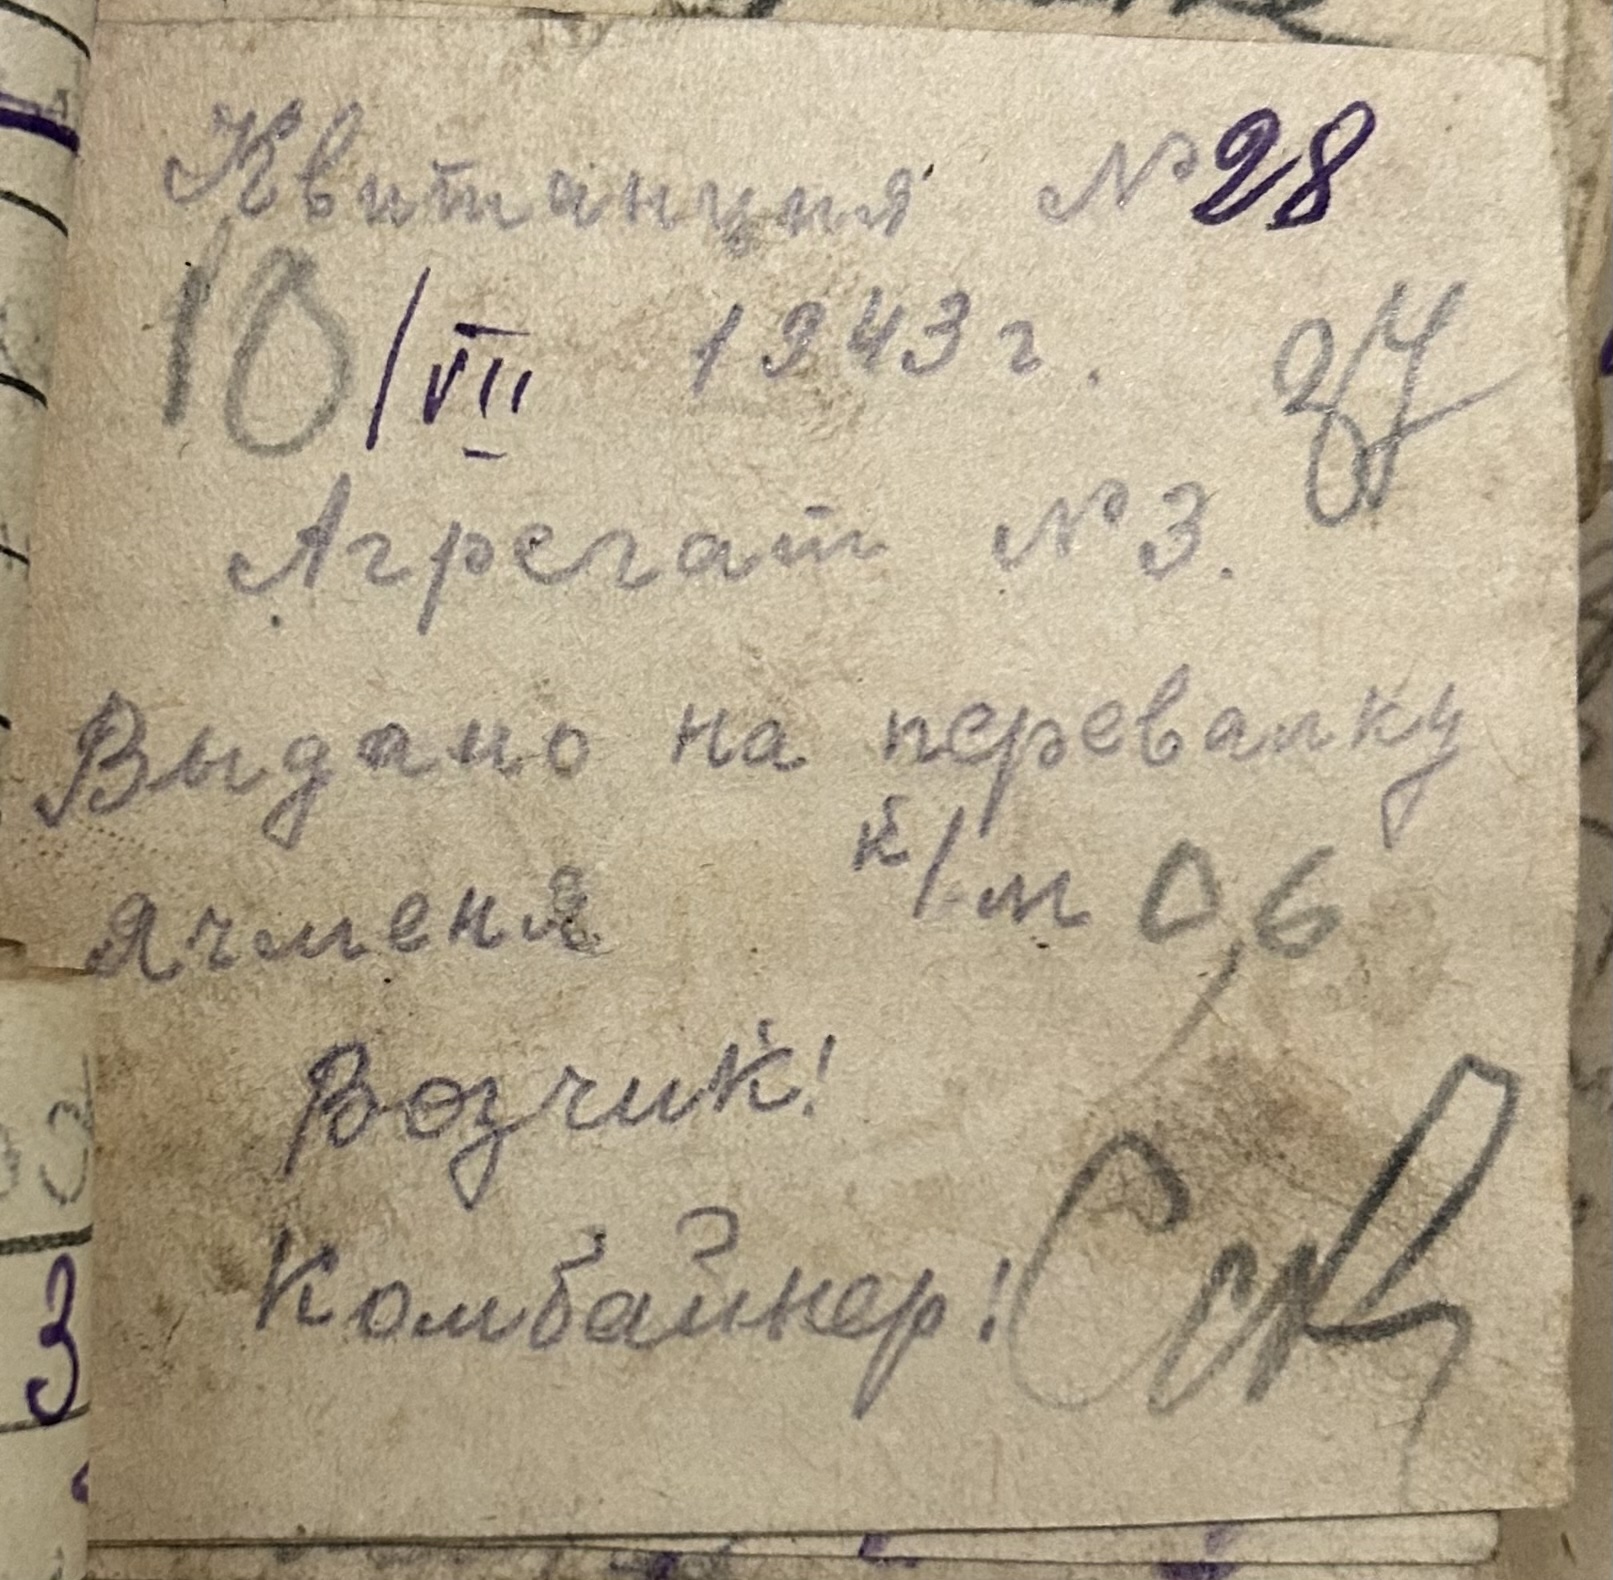 Квитанция № 28
10/VII 1943 г.
Агрегат № 3.
Выдано на перевалку
ячменя к/м 0,6
Возчик!
Комбайнер!
3